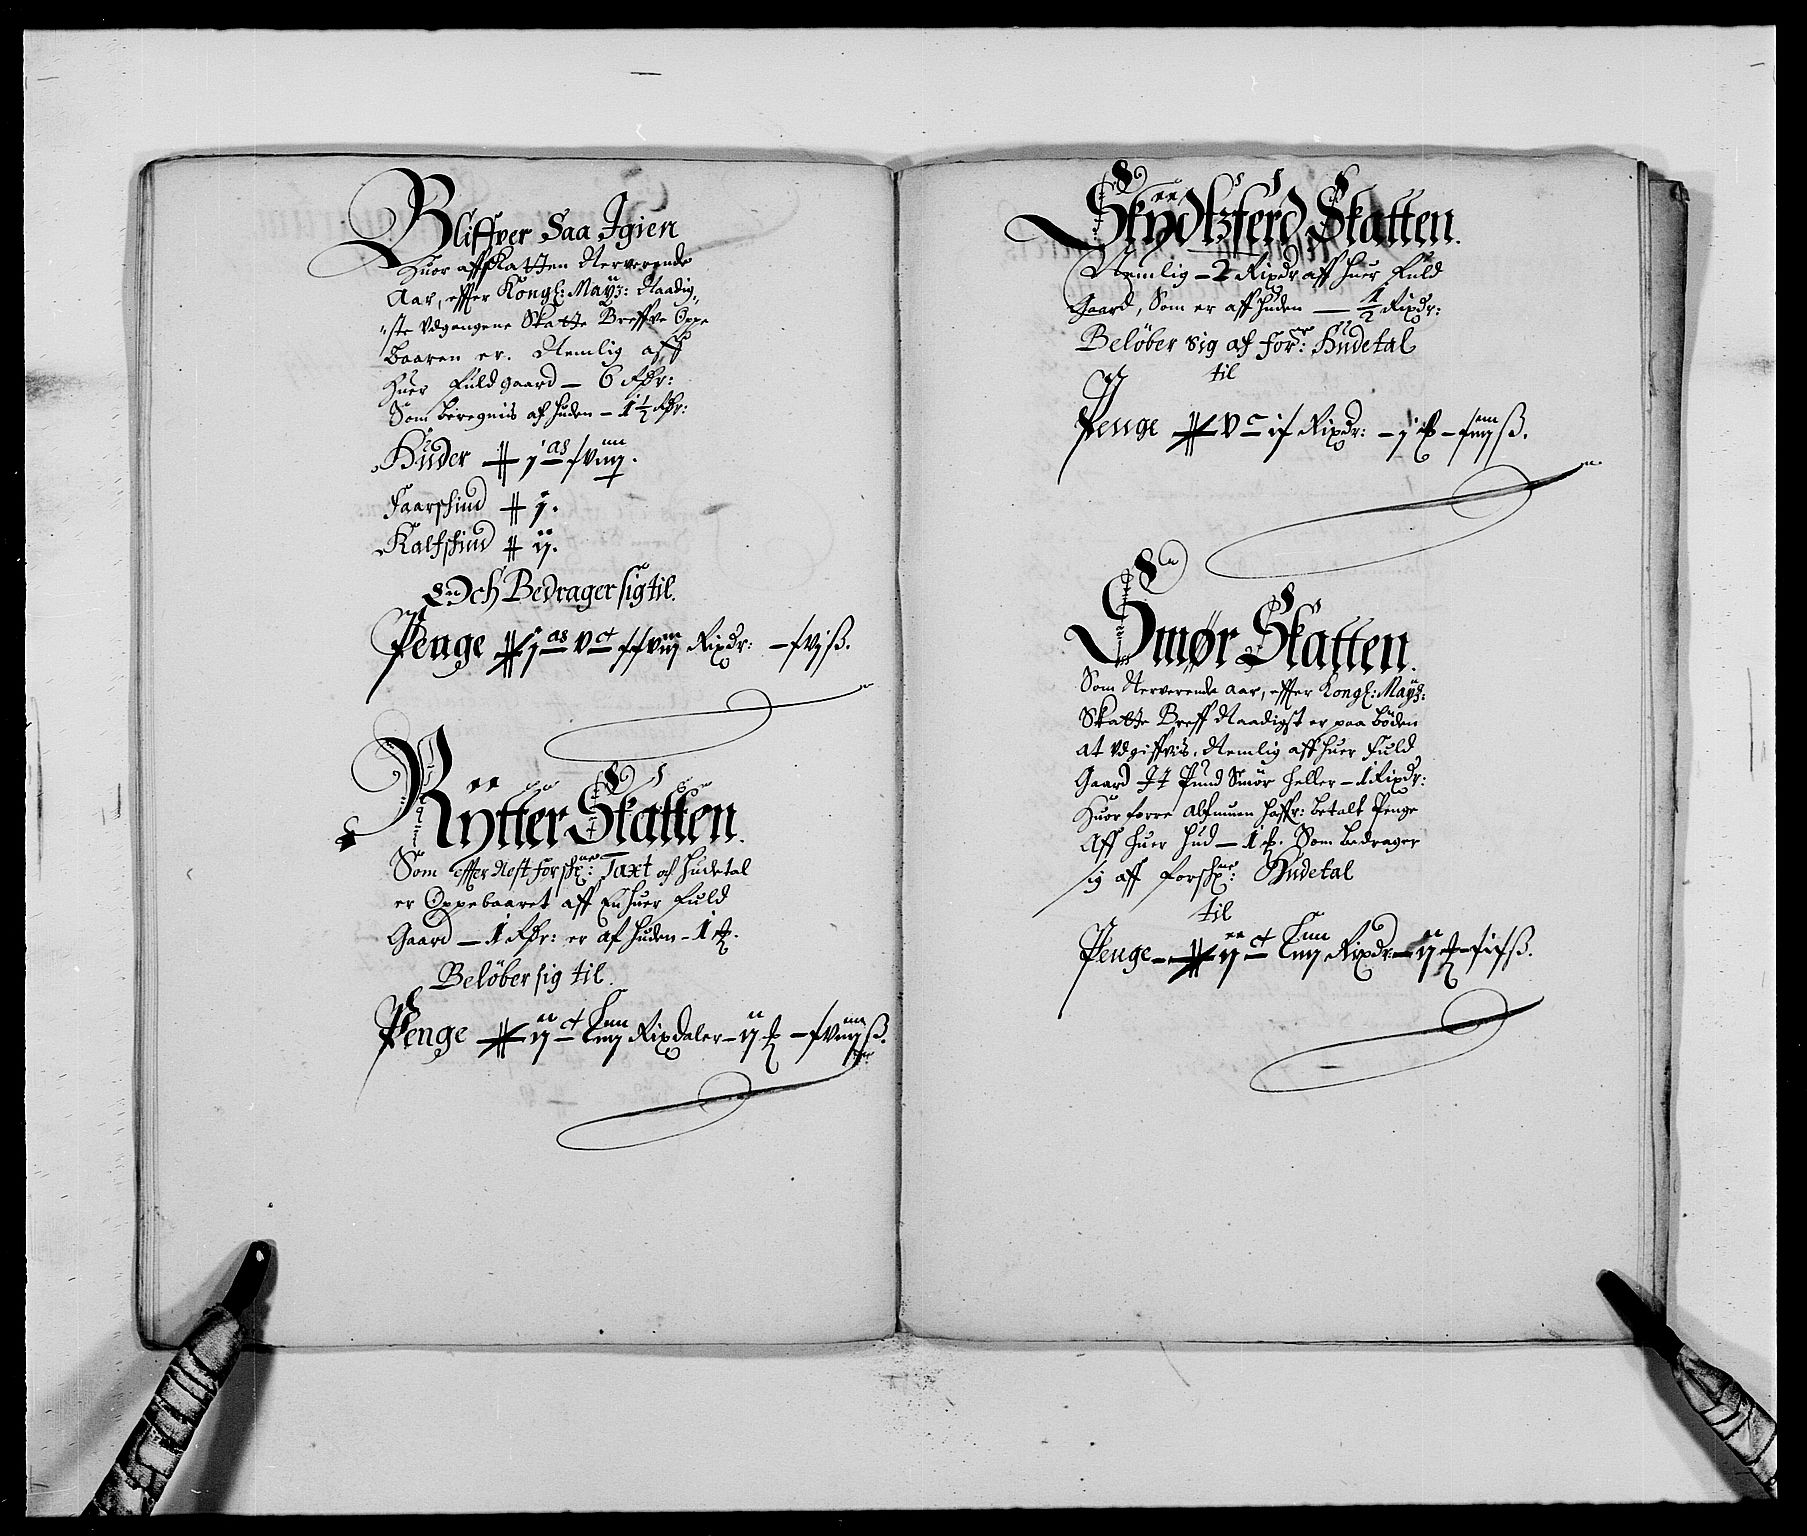 Bliffver Saa Igien
Huor aff Skatten Nerverende
Aar, effter Kongl: Mayz: Naadig„
„ste Vdgangene Skatte Breffve Oppe
baaren er. Nemlig aff
Huer Fuld gaard – 6 Rdr:
Som beregnis af huden – 1½ Rdr:
Huder # j as fviij.
Faarskind # j.
Kalfskind # ij.
Och Bedrager sig til.
Penge # j as v ct ffviij Rixdr: – fvj ß.
Rÿtter Skatten.
Som effter Nest forschr: Taxt och Hudetal
er Oppebaaret aff En huer Fuld
Gaard – 1 Rdr: er af huden – 1 ꝶ.
Beløber sig til.
Penge # ij ct Liiij Rixdaler – ij ꝶ – fviij ß.
Skÿdtzferd Skatten.
Nemlig – 2 Rixdr aff huer Fuld
Gaard, Som er aff huden — ½ Rixdr:
Beløber sig af for: Hudetal
til
Penge # v c if Rixdr: – j ꝶ – fiiij ß.
Smør Skatten.
Som Nerverende Aar, effter Kongl: Mayz:
Skatte Breff Naadigst er paa böden
at Vdgiffvis. Nemlig aff huer Fuld
Gaard Pund Smör heller – 1 Rixdr:
Huor forre Almuen haffr: betalt Penge
Aff huer Hud – 1 ꝶ. Som bedrager
sig aff forschr: Hudetal
til
Penge – # ij ct Liiij Rixdr – ij ꝶ – fif ß.